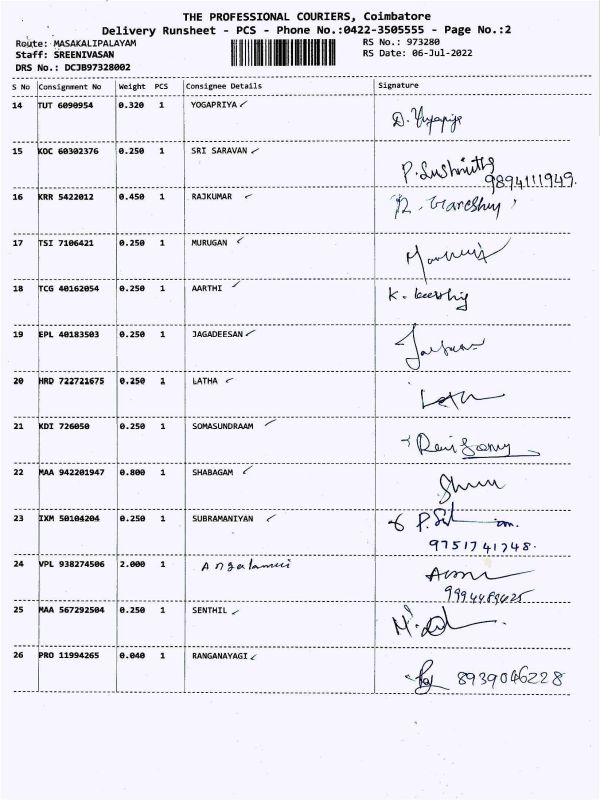 THE PROFESSIONAL COURIERS, Coimbatore
Delivery Runsheet - PCS - Phone No.:0422-3505555 - Page No.:2
Route: MASAKALIPALAYAM RS No.: 973280
Staff: SREENIVASAN RS Date: 06-Jul-2022
DRS No.: DCJB97328002
S No Consignment No Weight PCS Consignee Details Signature
14 TUT 6090954 0.320 1 YOGAPRIYA
15 KOC 60302376 0.250 1 SRI SARAVAN P. Sushmitha
9894111949.
16 KRR 5422012 0.450 1 RAJKUMAR
17 TSI 7106421 0.250 1 MURUGAN
18 TCG 40162054 0.250 1 AARTHI
19 EPL 40183503 0.250 1 JAGADEESAN
20 HRD 722721675 0.250 1 LATHA Latha
21 KDI 726050 0.250 1 SOMASUNDRAAM
22 MAA 942201947 0.800 1 SHABAGAM
23 IXM 50104204 0.250 1 SUBRAMANIYAN
9751741748.
24 VPL 938274506 2.000 1
9994489425
25 MAA 567292504 0.250 1 SENTHIL
26 PRO 11994265 0.040 1 RANGANAYAGI 8939046228